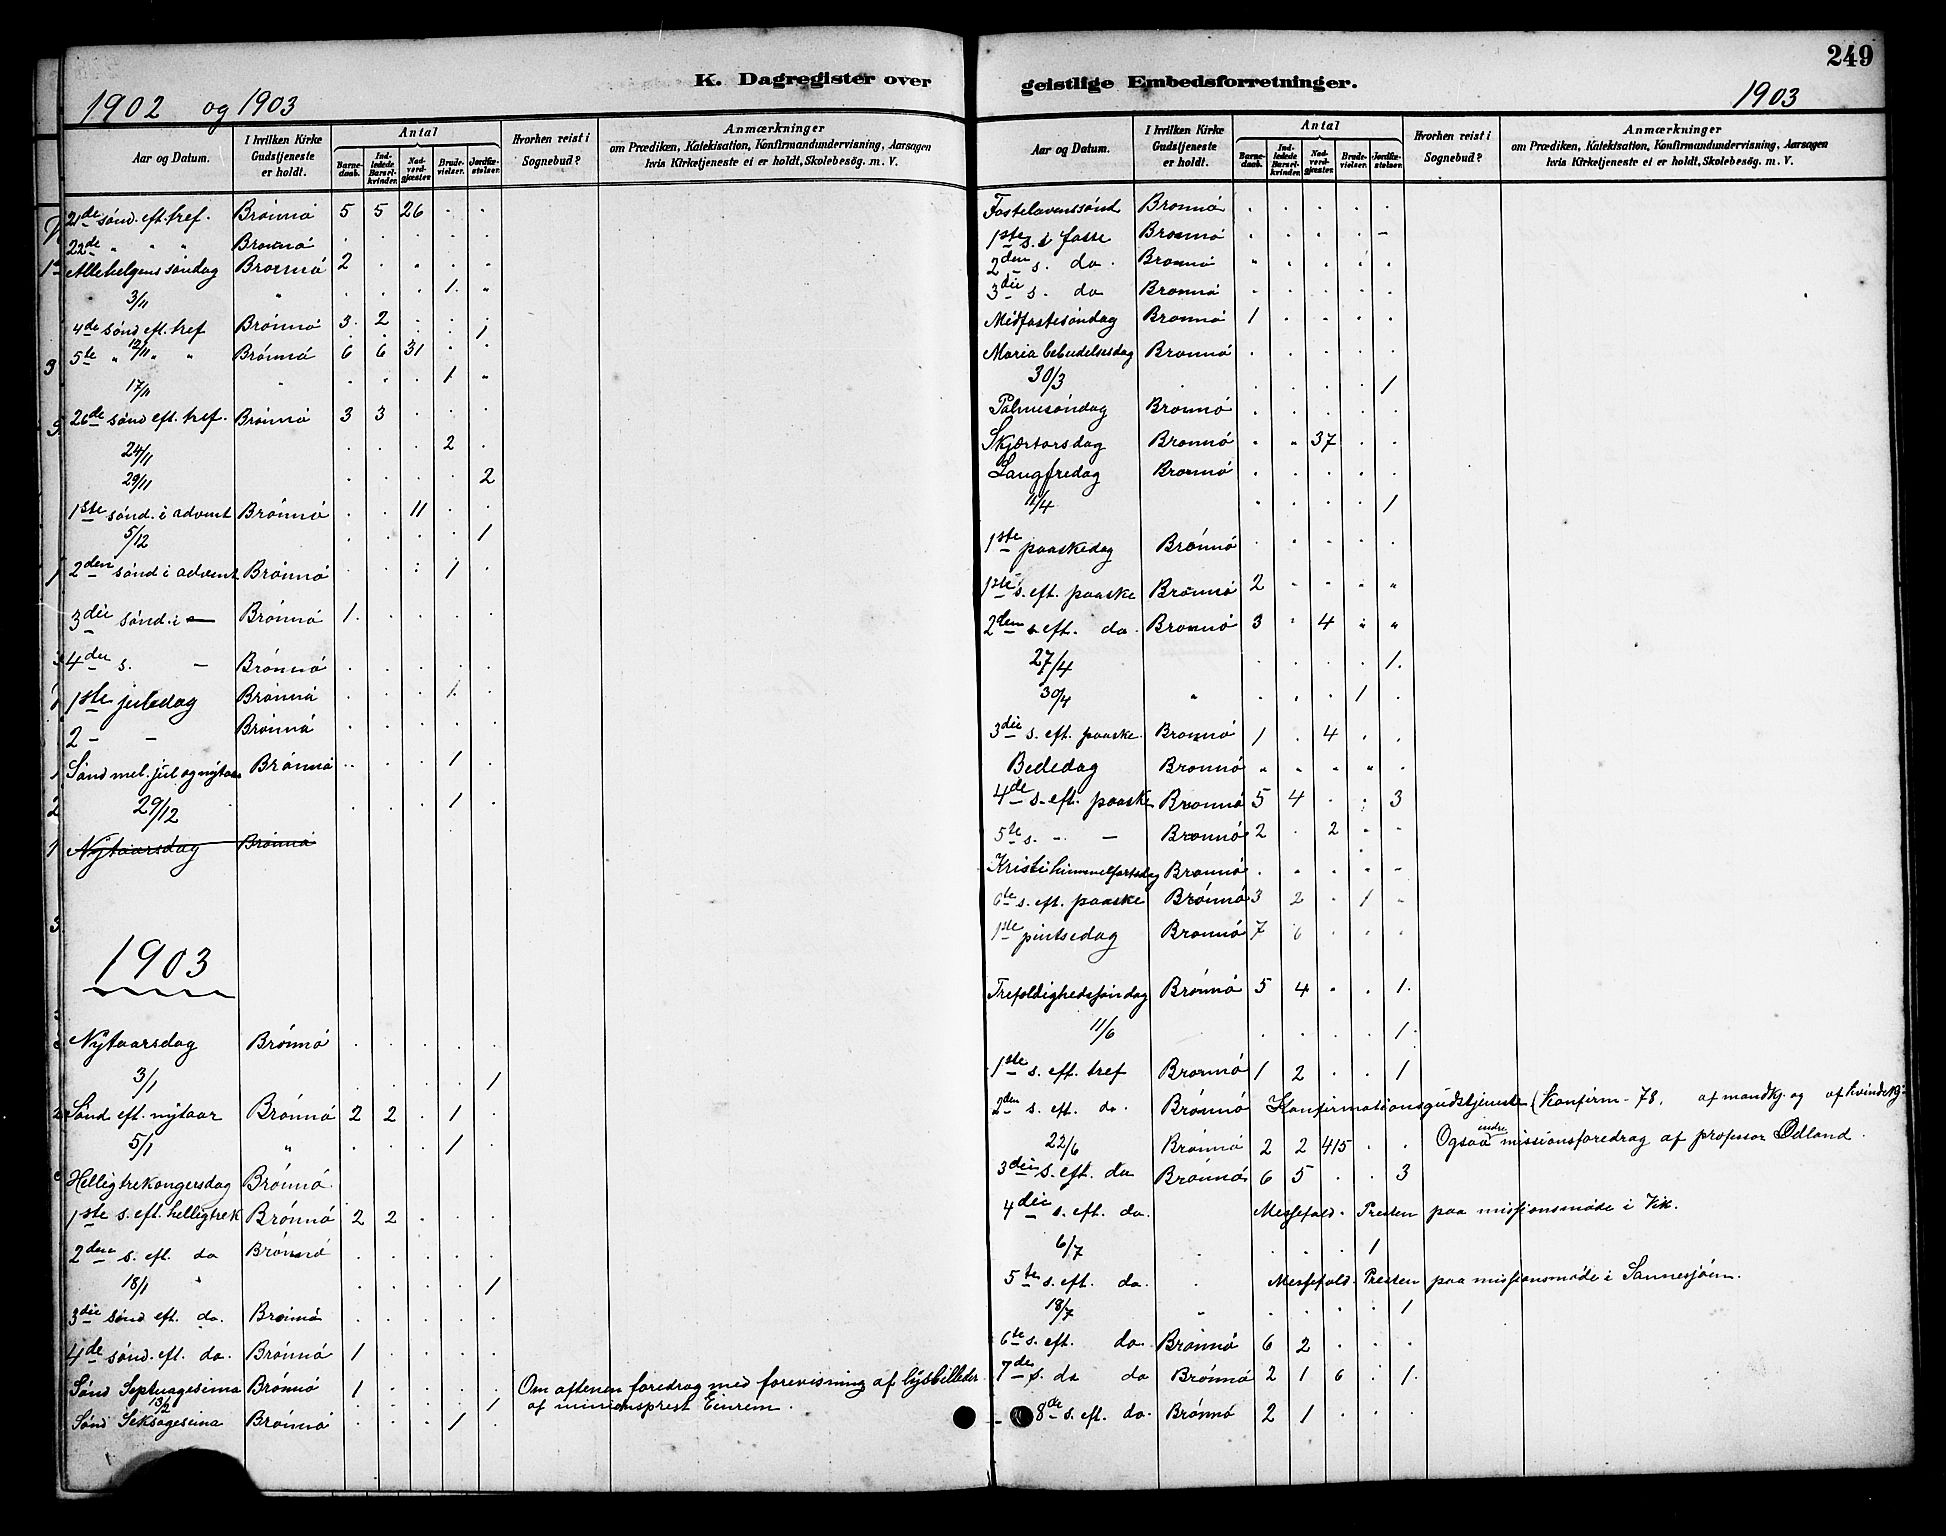 K. Dagregister over
1902 og 1903
Aar og Datum.
I hvilken Kirke Gudstjeneste er holdt.
Antal
Barnedaab.
Indledede Barselkvinder.
Nadverdgjæster.
Brudevielser.
Jordfæstelser.
Hvorhen reist i Sognebud?
Anmærkninger
om Prædiken, Katekisation, Konfirmandundervisning, Aarsagen
hvis Kirketjeneste ei er holdt, Skolebesøg. m. V.
21de sønd. eft. tref. Brønnø 5 5 26 . .
22de " " " Brønnø . . . . .
Allehelgens søndag Brønnø 2 . . . .
3/11 " . . . 1. "
4de sønd eft. tref Brønnø 3. 2 . . .
12/11 . . . . 1
5te " " " Brønnø 6 6 31 . .
17/11 " . . . 1 "
26de sønd eft. tref. Brønnø 3 3 . . .
24/11 . . . 2 .
29/11 . . . . 2
1ste sønd. i advent Brønnø . . 11 . .
5/12 . . . . 1
2den sønd i advent Brønnø . . . 1 .
3die sønd. i — Brønnø 1. . . . .
4de s. — Brønnø . . . . .
1ste juledag Brønnø . . . 1. .
2 – – Brønnø . . . . .
Sønd mel. jul og nytaar Brønnø . . . 1 .
29/12 . . . 1 .
Nytaarsdag Brønnø
1903
Nytaarsdag Brønnø . . . . .
3/1 . . . . 1
Sønd eft. nytaar Brønnø 2 2 . 1 .
5/1 " . . . 1 .
Helligtrekongersdag Brønnø.
1ste s. eft. helligtrek Brønnø 2 2 . . .
2den s. eft. do Brønnø . . . . .
18/1 " . . . . 1
3die sønd eft. do. Brønnø . . . . .
4de sønd. eft. do. Brønnø 1 . . . .
Sønd Septuagesima Brønnø 1 . . . . Om aftenen foredrag med forevisning af lysbilleder
13/2 . . . . 1 af missionsprest Einrem.
Sønd Seksagesima Brønnø . . . 1 .
249
geistlige Embedsforretninger.
1903
Aar og Datum.
I hvilken Kirke Gudstjeneste er holdt.
Antal
Barnedaab.
Indledede Barselkvinder.
Nadverdgjæster.
Brudevielser.
Jordfæstelser.
Hvorhen reist i Sognebud?
Anmærkninger
om Prædiken, Katekisation, Konfirmandundervisning, Aarsagen
hvis Kirketjeneste ei er holdt, Skolebesøg. m. V.
Fastelavenssønd Brønnø . . . . .
1ste s. i faste Brønnø . . . . –
2den s. do. Brønnø " . . . .
3die s. do Brønnø . . . . .
Midfastesøndag Brønnø 1 . . . .
Maria bebudelsesdag Brønnø . . . . .
30/3 . . . . . 1
Palmesøndag Brønnø . . . . .
Skjærtorsdag Brønnø . " 37 . .
Langfredag Brønnø . . . . .
11/4 " . . . 1
1ste paaskedag Brønnø . . . . .
1ste s. eft. paaske Brønnø 2 " " " "
2den s. eft. do. Brønnø 3 " 4 " "
27/4 . . . . 1.
30/4 " . . . 1 .
3die s. eft. paaske. Brønnø 1 . 4 . .
Bededag Brønnø " " " " .
4de s. eft. paaske Brønnø 5 4 . . 3
5te s. – — Brønnø 2 . 2 " "
Kristi himmelfartsdag Brønnø . . . . –
6te s. eft. paaske Brønnø 3 2 . 1 .
1ste pintsedag Brønnø 7 6 . . .
Trefoldighedssøndag Brønnø 5 4 . . 1.
11/6 . . . . 1.
1ste s. eft. tref Brønnø 1 2 . . 1
2den s. eft. do. Brønnø Konfirmationsgudstjeneste (Konfirm – 78. af mandkj. og af kvindekj:
22/6 Brønnø 2 2 415 . . Ogsaa missionsforedrag af professor Ødland.
3die s. eft. do Brønnø 6 5 . . 3
4die s. eft. do. Messefald. Presten paa missionsmøde i Vik.
6/7 . . . . 1
5te s. eft. do. . Messefald. Presten paa missionsmøde i Sannesjøen.
18/7 " . . . . 1
6te s. eft. do. Brønnø 6 2 . . .
7de s. do do Brønnø 2 1 6 . 1.
8de s. eft. do. Brønnø 2 1 . . .